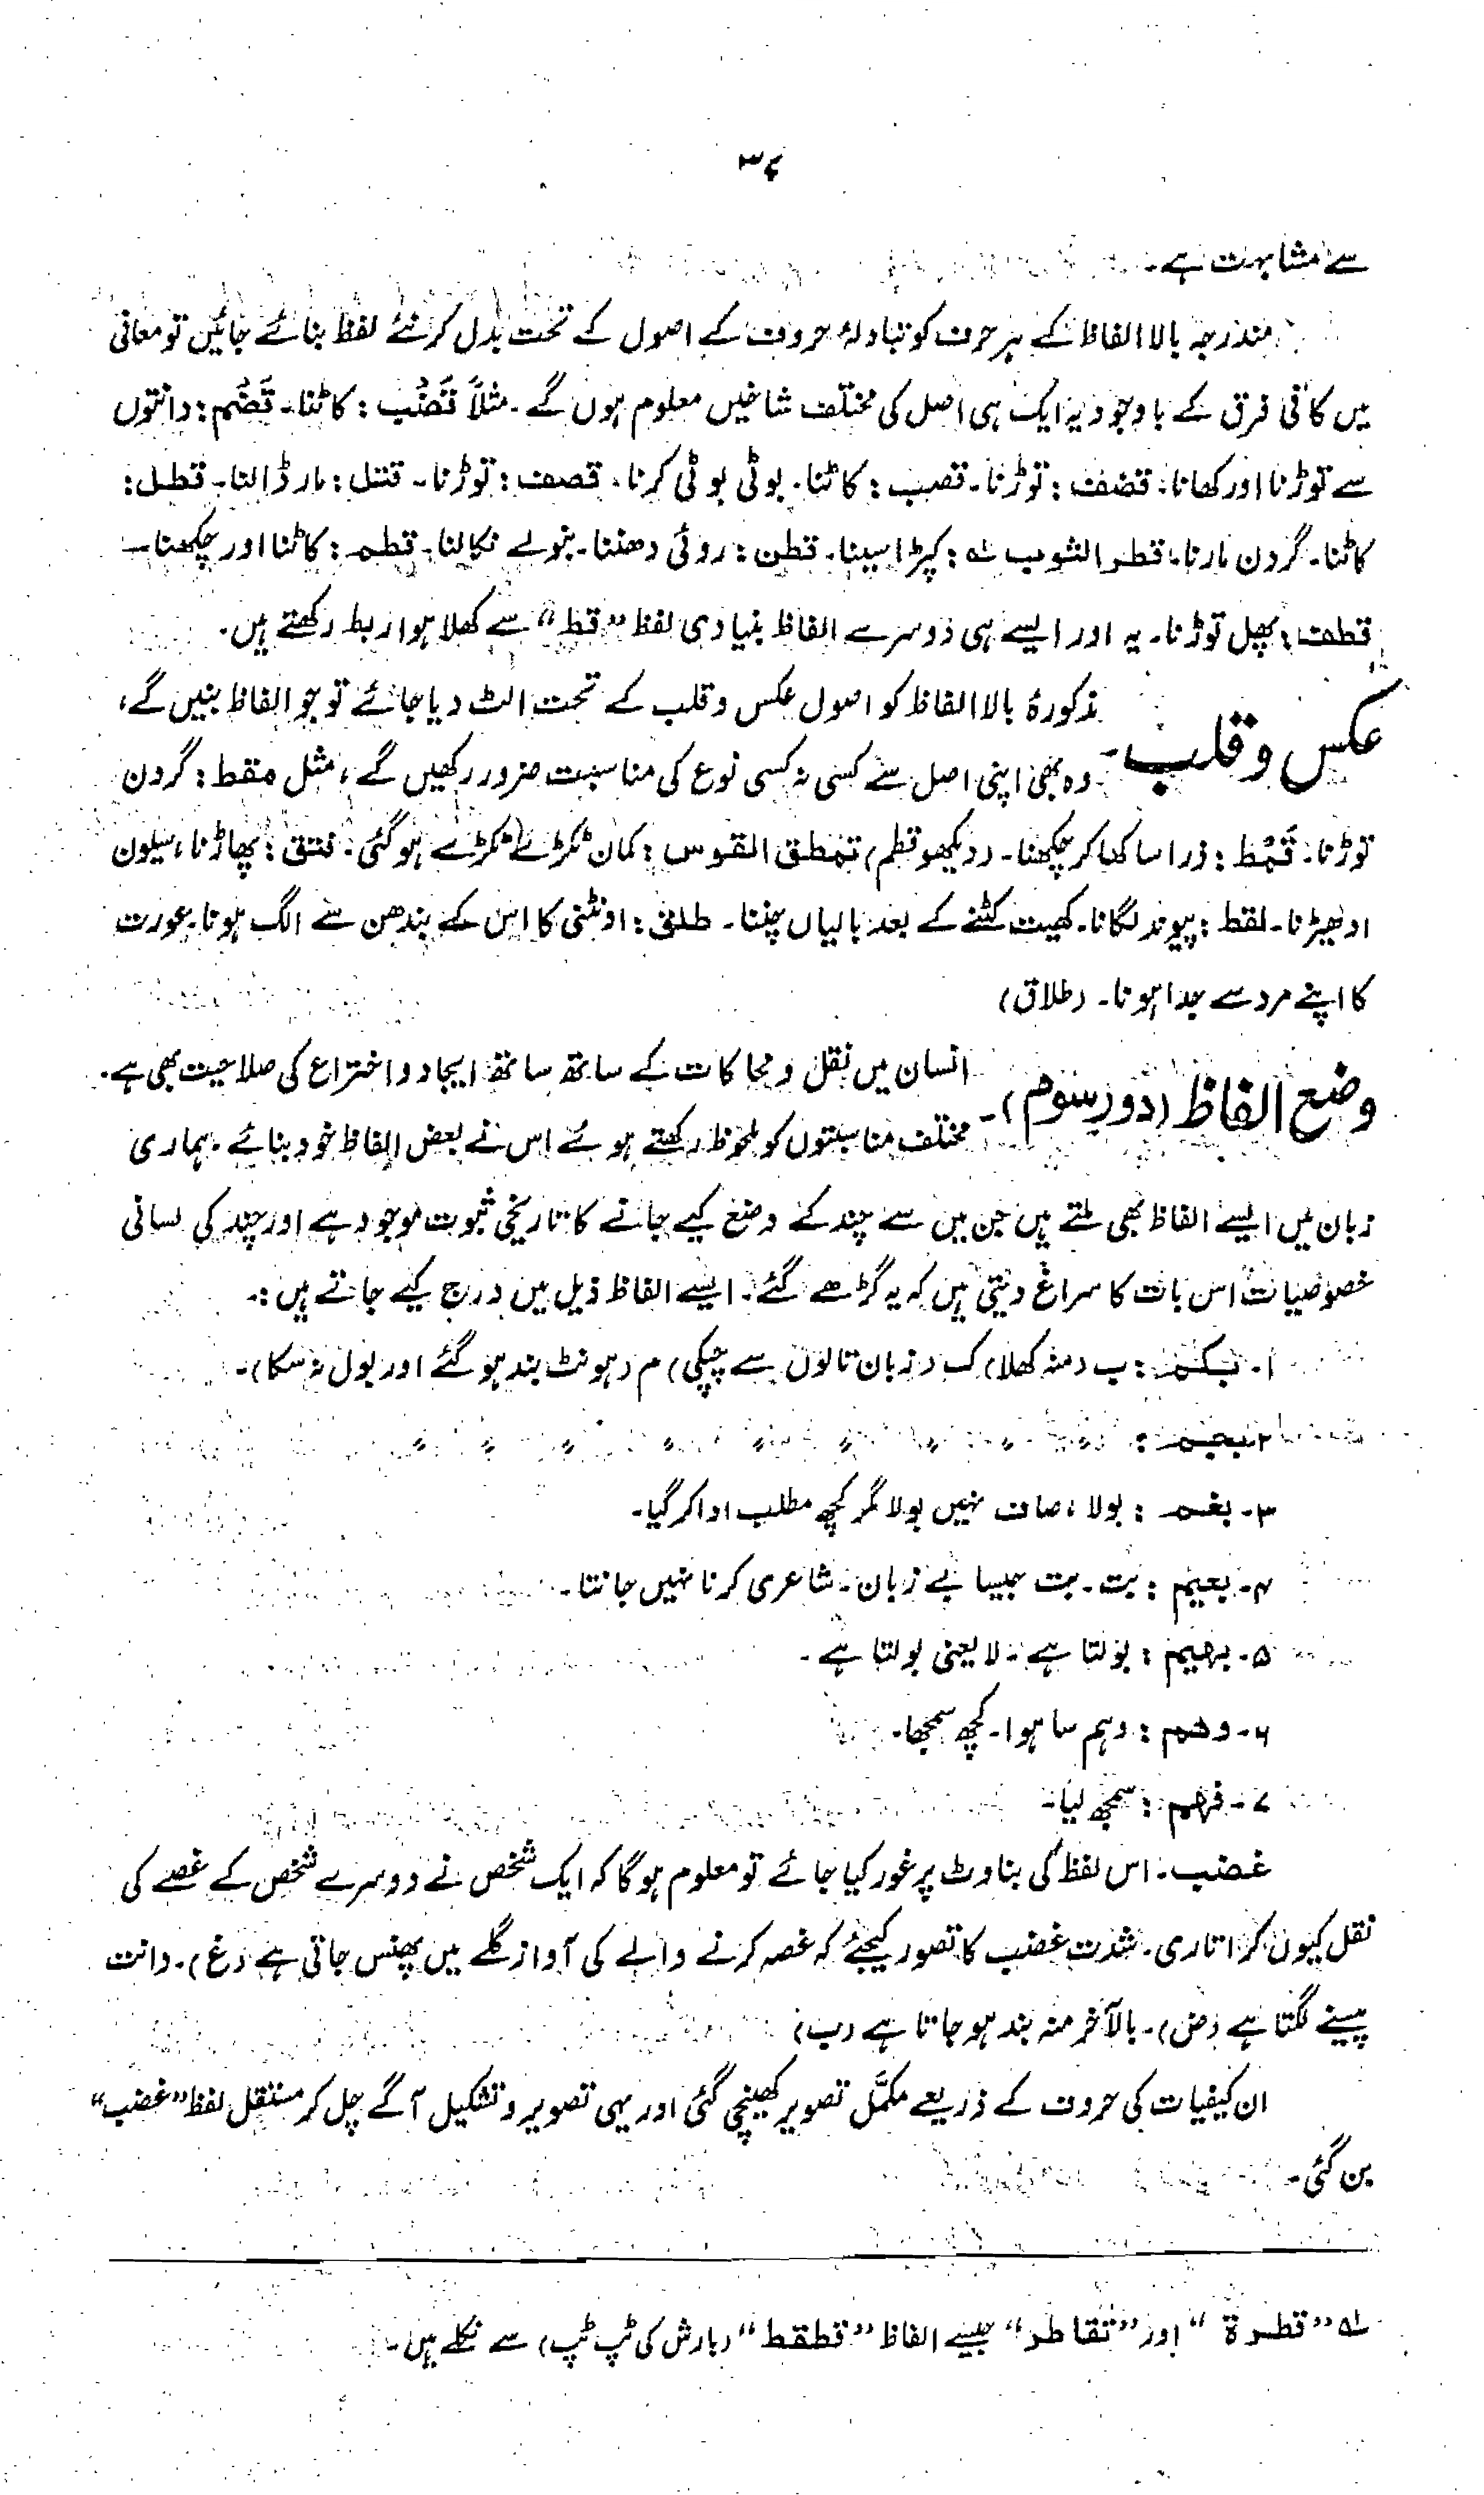 ۳۶
سے مشابہت ہے۔
مندرجہ بالا الفاظ کے ہر حرف کو تبادلۂ حروف کے اصول کے تحت بدل کر نئے لفظ بنائے جائیں تو معانی
میں کافی فرق کے باوجود یہ ایک ہی اصل کی مختلف شاخیں معلوم ہوں گے۔ مثلاً قَضْب : کاٹنا۔ قَضْم : دانتوں
سے توڑنا اور کھانا۔ قضف : توڑنا۔ قصب : کاٹنا۔ بوٹی بوٹی کرنا۔ قصف : توڑنا۔ قتل : مار ڈالنا۔ قطل :
کاٹنا۔ گردن مارنا۔ قطر الثوب لہ : کپڑا سینا۔ قطن : روئی دھننا۔ بنولے نکالنا۔ قطم : کاٹنا اور چکھنا۔
قطف : پھل توڑنا۔ یہ اور ایسے ہی دوسرے الفاظ بنیادی لفظ ”قط“ سے کھلا ہوا ربط رکھتے ہیں۔
عکس و قلب۔ مذکورۂ بالا الفاظ کو اصول عکس و قلب کے تحت الٹ دیا جائے تو جو الفاظ بنیں گے،
وہ بھی اپنی اصل سے کسی نہ کسی نوع کی مناسبت ضرور رکھیں گے، مثل مقط : گردن
توڑنا۔ قَمْط : ذرا سا کھا کر چکھنا۔ (دیکھو قطم) تمطق القوس : کمان ٹکڑے ٹکڑے ہو گئی۔ فتق : پھاڑنا، سیون
ادھیڑنا۔ لقط : پیوند لگانا۔ کھیت کٹنے کے بعد بالیاں چننا۔ طلق : اونٹنی کا اس کے بندھن سے الگ ہونا۔ عورت
کا اپنے مرد سے جدا ہونا۔ (طلاق)
وضع الفاظ (دورِ سوم)۔ انسان میں نقل و محاکات کے ساتھ ساتھ ایجاد و اختراع کی صلاحیت بھی ہے۔
مختلف مناسبتوں کو ملحوظ رکھتے ہوئے اس نے بعض الفاظ خود بنائے۔ ہماری
زبان میں ایسے الفاظ بھی ملتے ہیں جن میں سے چند کے وضع کیے جانے کا تاریخی ثبوت موجود ہے اور چند کی لسانی
خصوصیات اس بات کا سراغ دیتی ہیں کہ یہ گڑھے گئے۔ ایسے الفاظ ذیل میں درج کیے جاتے ہیں :۔
۱۔ بکم : ب (منہ کھلا) ک (زبان تالوں سے چپکی) م (ہونٹ بند ہو گئے اور بول نہ سکا)۔
۲۔ بجم : 〃 〃 〃 〃 〃 〃 〃 〃 〃
۳۔ بغم : بولا، صاف نہیں بولا مگر کچھ مطلب ادا کر گیا۔
۴۔ بعیم : بت۔ بت جیسا بے زبان۔ شاعری کرنا نہیں جانتا۔
۵۔ بہیم : بولتا ہے۔ لا یعنی بولتا ہے۔
۶۔ وھم : وہم سا ہوا۔ کچھ سمجھا۔
۷۔ فہم : سمجھ لیا۔
غضب۔ اس لفظ کی بناوٹ پر غور کیا جائے تو معلوم ہوگا کہ ایک شخص نے دوسرے شخص کے غصے کی
نقل کیوں کر اتاری۔ شدت غضب کا تصور کیجئے کہ غصہ کرنے والے کی آواز گلے میں پھنس جاتی ہے (غ)۔ دانت
پیسنے لگتا ہے (ض)۔ بالآخر منہ بند ہو جاتا ہے (ب)
ان کیفیات کی حروف کے ذریعے مکمّل تصویر کھینچی گئی اور یہی تصویر و تشکیل آگے چل کر مستقل لفظ ”غضب“
بن گئی۔
لہ ”قطرة“ اور ”تقاطر“ جیسے الفاظ ”قطقط“ (بارش کی ٹپ ٹپ) سے نکلے ہیں۔